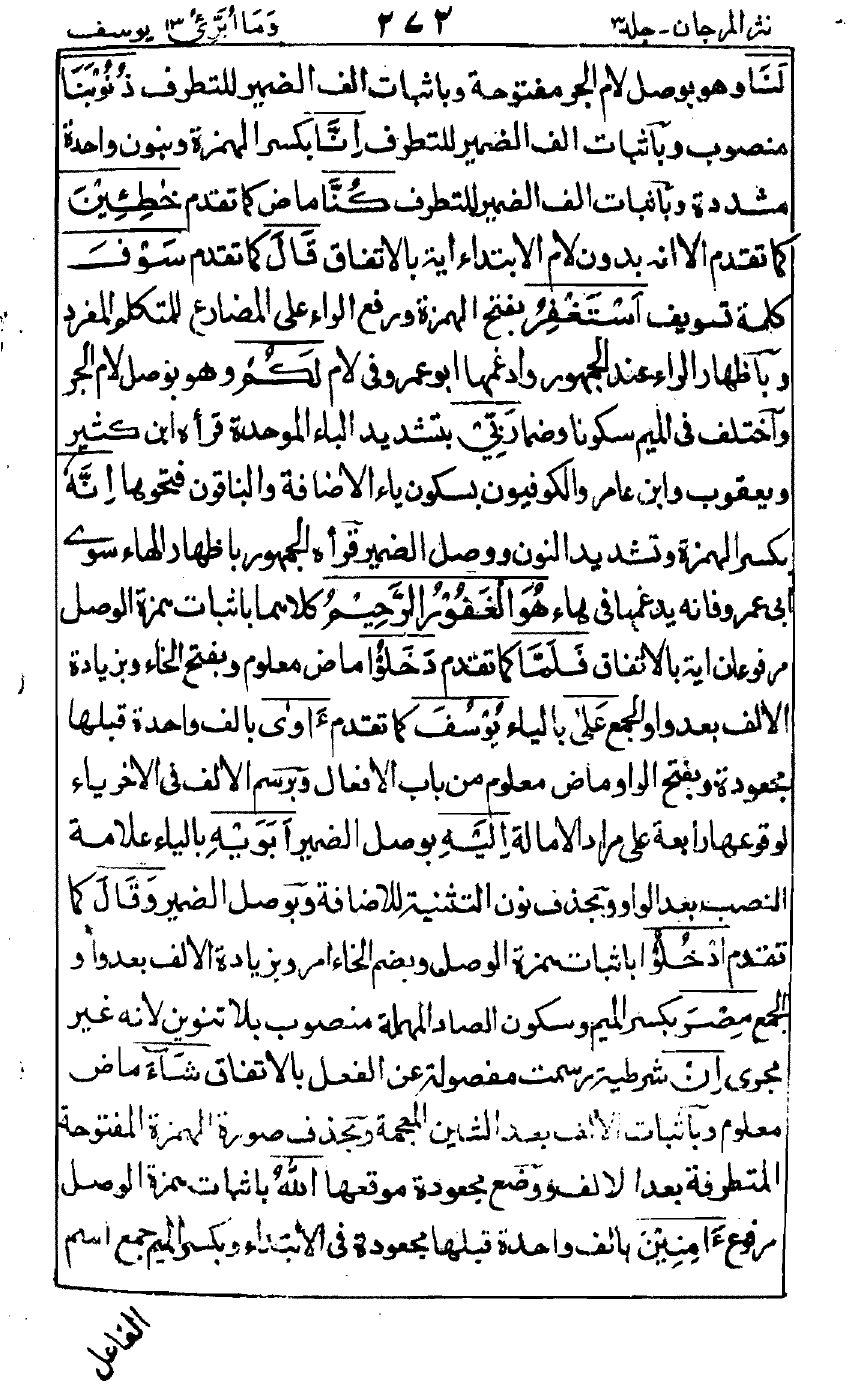 نثر المرجان - جلد ٣ ٢٧٢ وَمَا أُبَرِّئُ ١٣ يوسف
لَنَا وهو بوصل لام الجر مفتوحة وباثبات الف الضمير للتطرف ذُنُوْبَنَا
منصوب وبآثبات الف الضمير للتطرف اِنَّا بكسر الهمزة وبنون واحدة
مشددة وبآثبات الف الضمير للتطرف كُنَّا ماض كما تقدم خٰطِـِٕيْنَ
كما تقدم الا انه بدون لام الابتداء اية بالاتفاق قَالَ كما تقدم سَوْفَ
كلمة تسويف اَسْتَغْفِرُ بفتح الهمزة ورفع الراء على المضارع للمتكلم المفرد
وبآظهار الراء عند الجمهور وادغمها ابو عمرو فى لام لَكُمْ وهو بوصل لام الجر
وآختلف فى الميم سكونا وضما رَبِّيْ بتشديد الباء الموحدة قرأه ابن كثير
ويعقوب وابن عامر والكوفيون بسكون ياء الاضافة والباقون فتحوها اِنَّهُ
بكسر الهمزة وتشديد النون ووصل الضمير قرأه الجمهور باظهار الهاء سوى
ابى عمرو فانه يدغمها فى هاء هُوَ الْغَفُوْرُ الرَّحِيْمُ كلاهما باثبات همزة الوصل
مرفوعان اية بالاتفاق فَلَمَّا كما تقدم دَخَلُوْا ماض معلوم وبفتح الخاء وبزيادة
الالف بعد واو الجمع عَلٰى بالياء يُوْسُفَ كما تقدم ءَاوٰى بالف واحدة قبلها
مجعودة وبفتح الواو ماض معلوم من باب الافعال وبرسم الالف فى الاخر ياء
لوقوعها رابعة على مراد الامالة اِلَيْهِ بوصل الضمير اَبَوَيْهِ بالياء علامة
النصب بعد الواو وبحذف نون التثنية للاضافة وبوصل الضمير وَقَالَ كما
تقدم ادْخُلُوْا باثبات همزة الوصل وبضم الخاء امر وبزيادة الالف بعد واو
الجمع مِصْرَ بكسر الميم وسكون الصاد المهملة منصوب بلا تنوين لانه غير
مجرى اِنْ شرطية رسمت مفصولة عن الفعل بالاتفاق شَآءَ ماض
معلوم وبآثبات الالف بعد الشين المعجمة وبحذف صورة الهمزة المفتوحة
المتطرفة بعد الالف ووضع مجعودة موقعها اللهُ باثبات همزة الوصل
مرفوع ءَامِنِيْنَ بالف واحدة قبلها مجعودة فى الابتداء وبكسر الميم جمع اسم
الفاعل